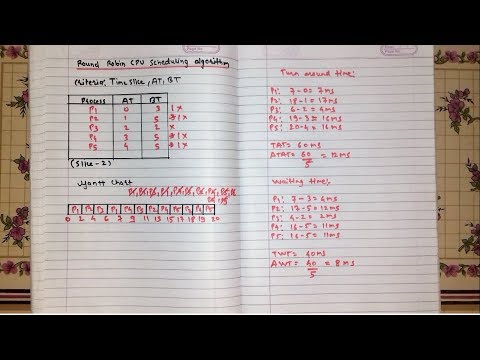 Round Robin CPU Scheduling algorithm
Criteria: Time slice, AT, BT
Process AT BT
P1 0 3 1 x
P2 1 5 3 1 x
P3 2 2 x
P4 3 5 3 1 x
P5 4 5 3 1 x
(Slice - 2)
Gantt Chart
0 2 4 6 7 9 11 13 15 17 18 19 20
Turn around time:
P1: 7-0= 7ms
P2: 18-1 = 17ms
P3: 6-2 = 4ms
P4: 19-3 = 16ms
P5: 20-4 = 16ms
TAT = 60ms
ATAT = 60/5 = 12ms
Waiting time:
P1: 7-3 = 4ms
P2: 17-5 = 12ms
P3: 4-2 = 2ms
P4: 16-5 = 11ms
P5: 16-5 = 11ms
TWT = 40ms
AWT = 40/5 = 8ms